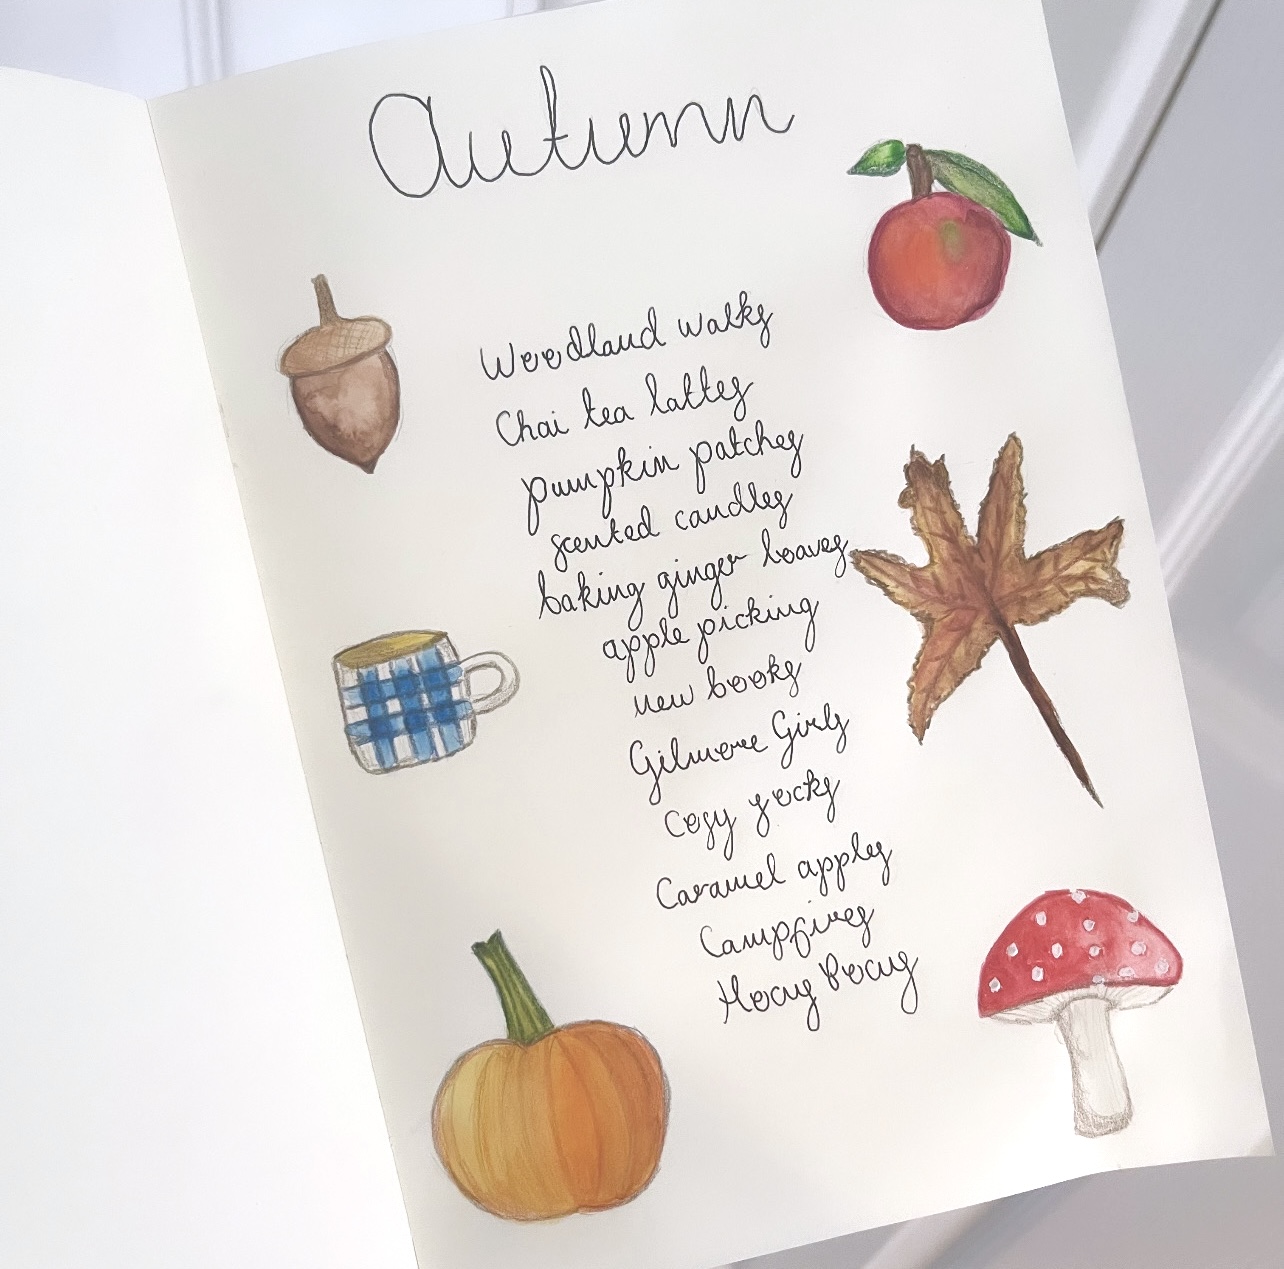 Autumn
Woodland walks
Chai tea lattes
pumpkin patches
scented candles
baking ginger loaves
apple picking
new books
Gilmore Girls
Cosy socks
Caramel apples
Campfires
Hocus Pocus